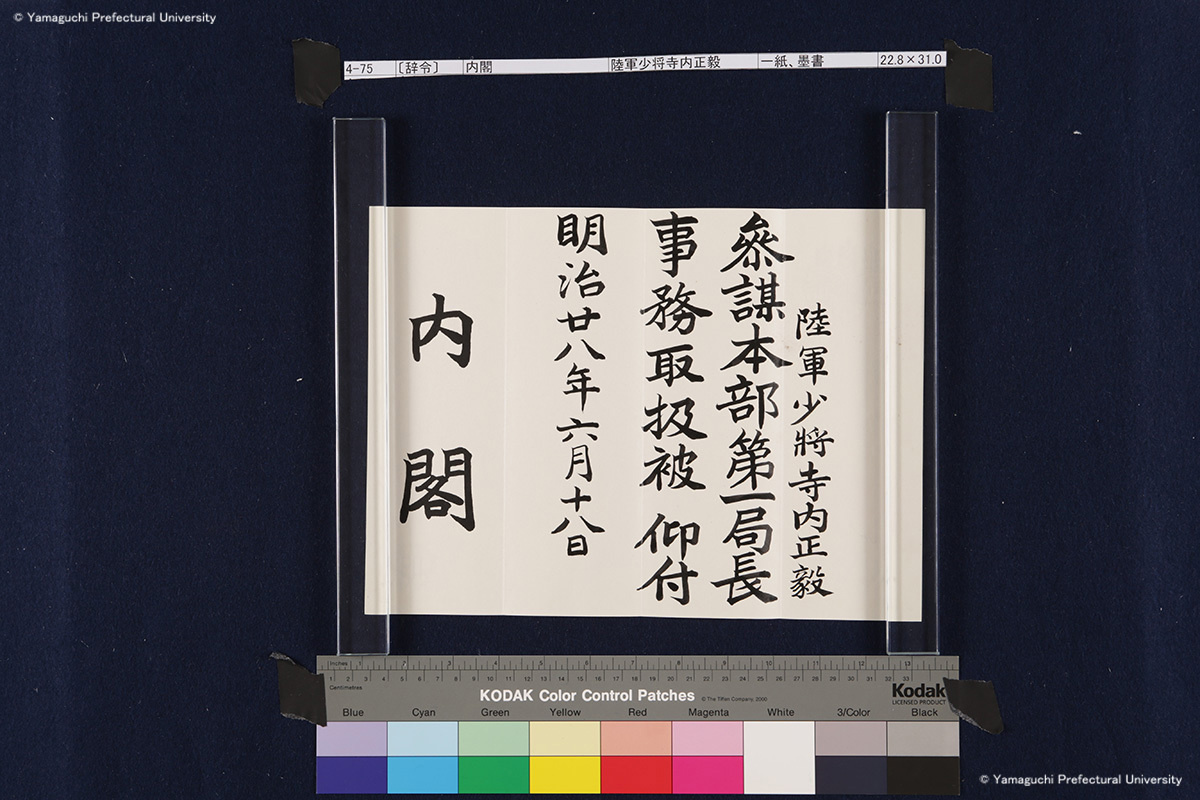 © Yamaguchi Prefectural University
4-75 〔辞令〕 内閣 陸軍少将寺内正毅 一紙、墨書 22.8×31.0
陸軍少將寺内正毅
參謀本部第一局長
事務取扱被 仰付
明治廿八年六月十八日
内閣
Inches 1 2 3 4 5 6 7 8 9 10 11 12 13
Centimetres 1 2 3 4 5 6 7 8 9 10 11 12 13 14 15 16 17 18 19 20 21 22 23 24 25 26 27 28 29 30 31 32 33
KODAK Color Control Patches © The Tiffen Company, 2000 Kodak
LICENSED PRODUCT
Blue Cyan Green Yellow Red Magenta White 3/Color Black
© Yamaguchi Prefectural University